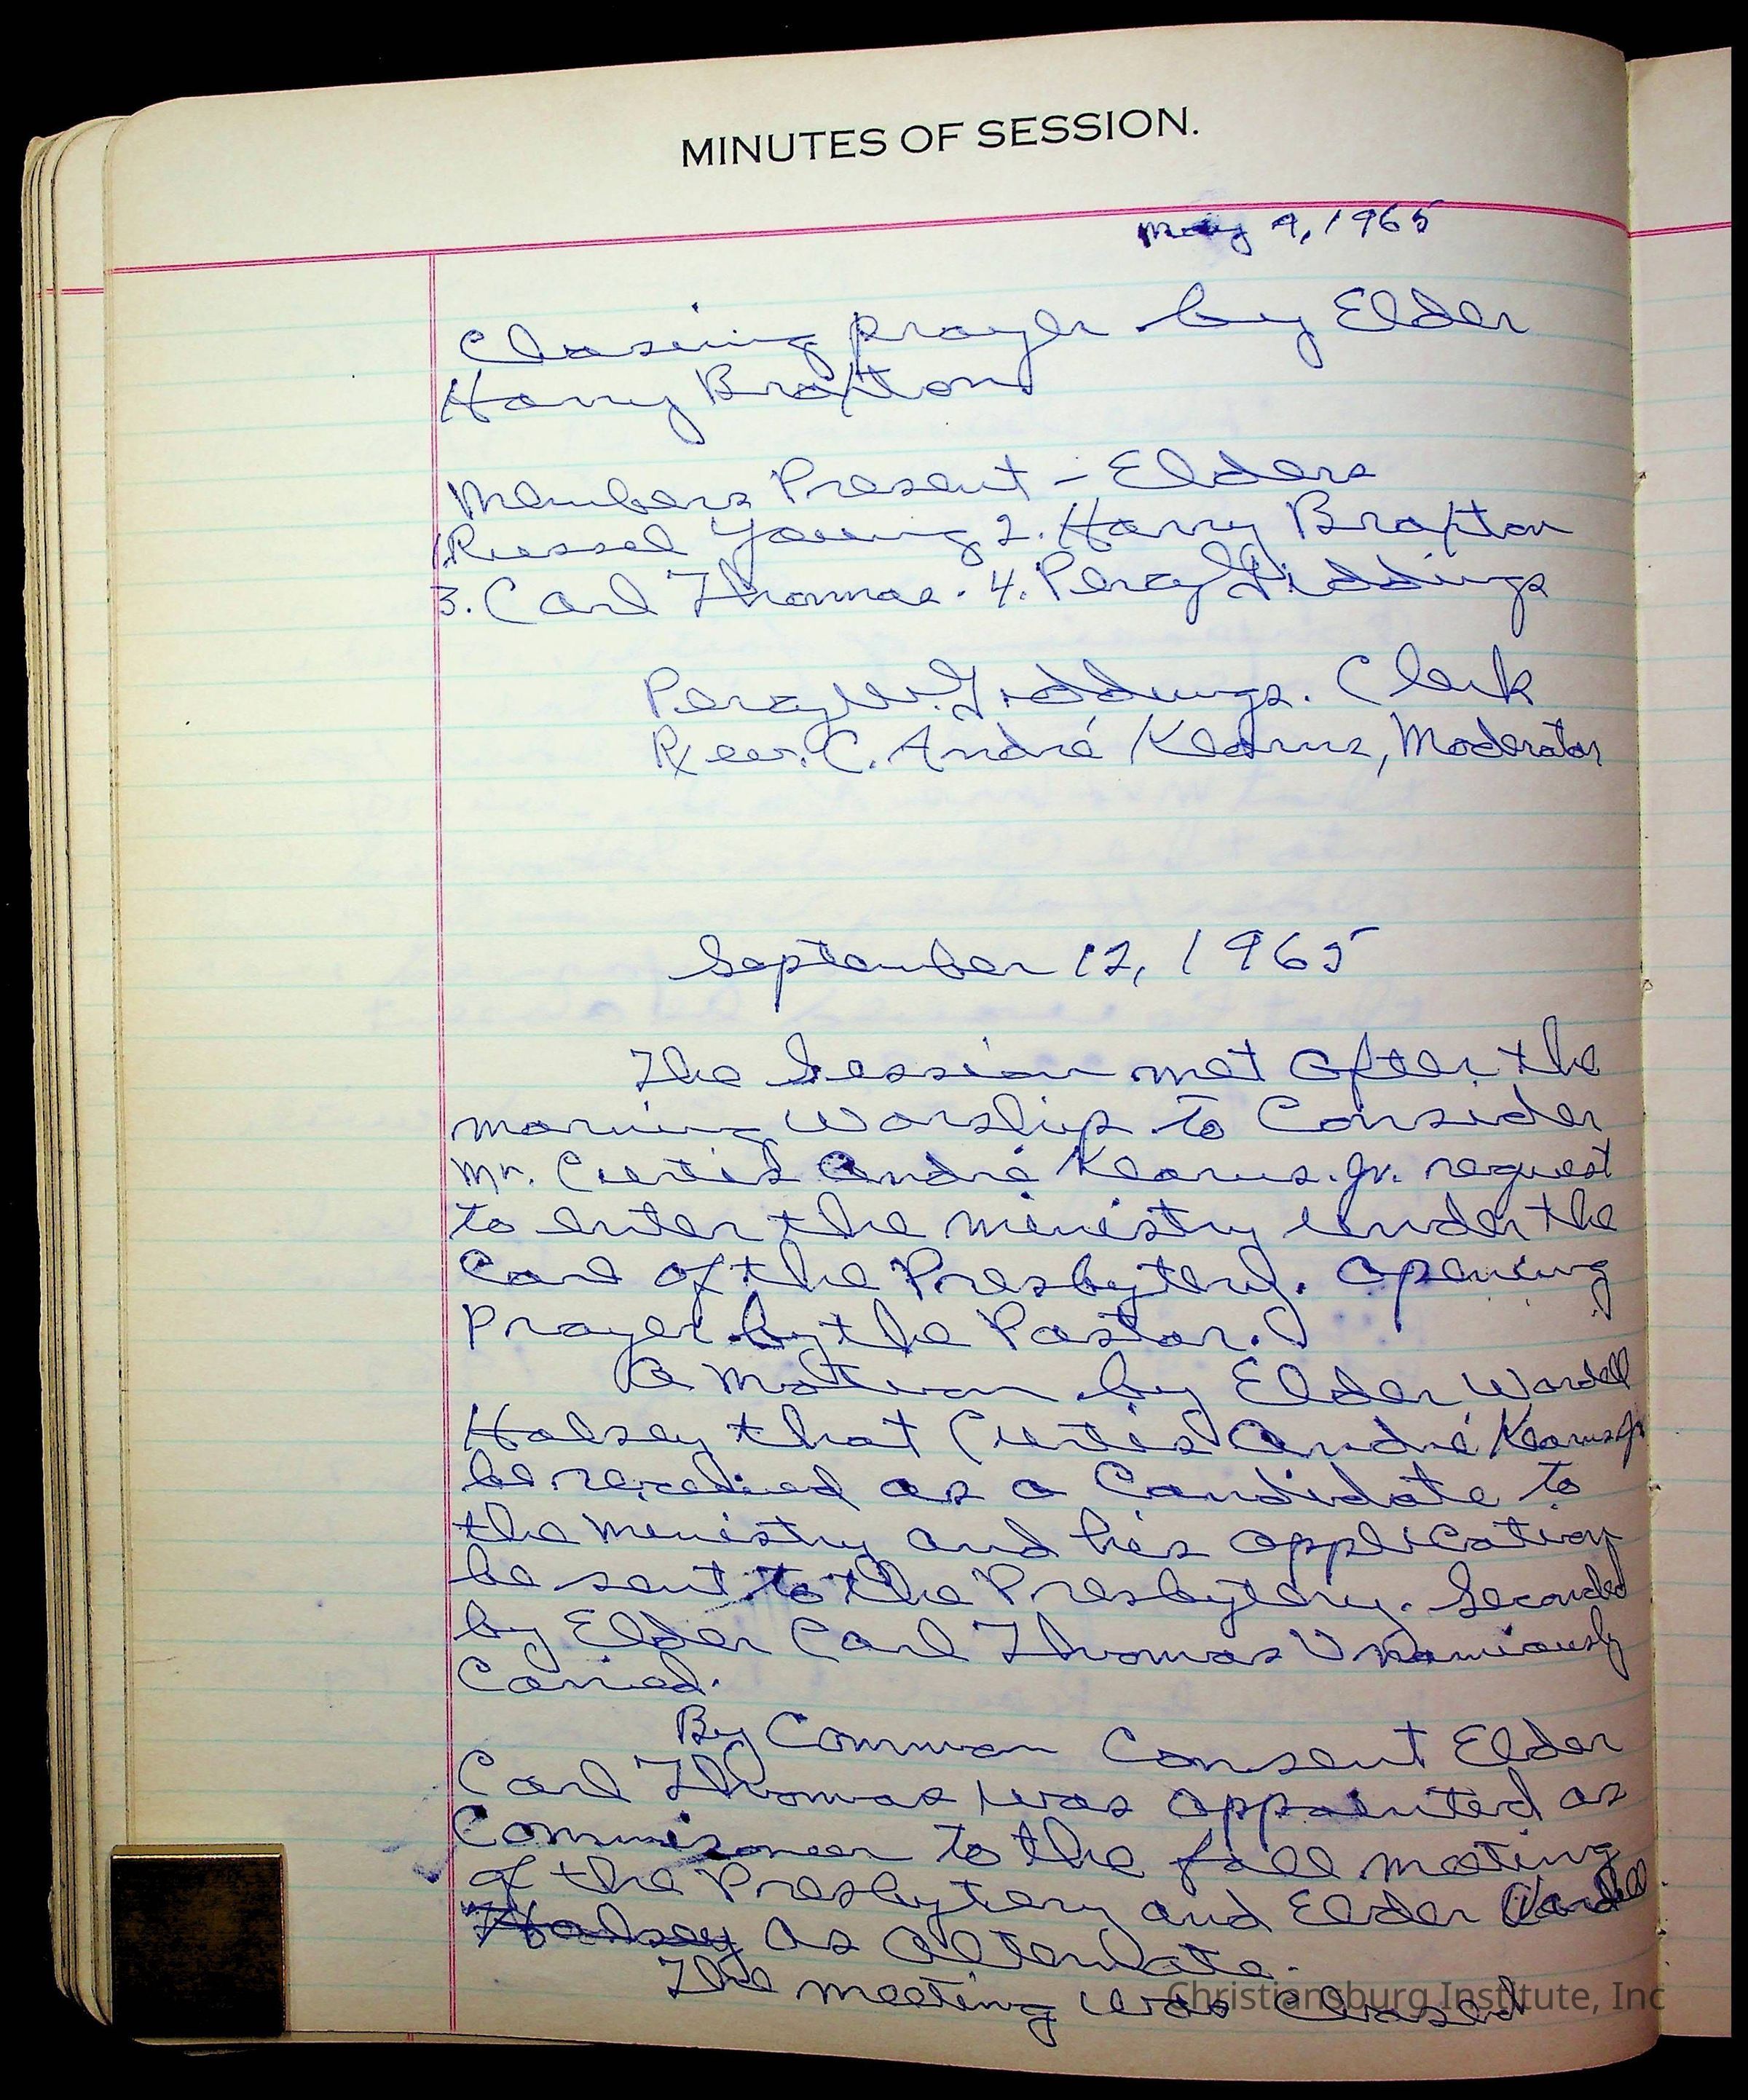 MINUTES OF SESSION.
May 9, 1965
Closing prayer by Elder
Harry Braxton
Members Present - Elders
1. Russel Young 2. Harry Braxton
3. Carl Thomas. 4. Percy Giddings
Percy W. Giddings. Clerk
Rev. C. André Kearns, Moderator
September 12, 1965
The Session met after the
morning worship to Consider
Mr. Curtis André Kearns. Jr. request
to enter the ministry under the
Care of the Presbytery. Opening
Prayer by the Pastor.
A motion by Elder Wardell
Halsey that Curtis André Kearns Jr
be received as a Candidate to
the ministry and his application
be sent to the Presbytery. Seconded
by Elder Carl Thomas Unamiously
Carried.
By Common Consent Elder
Carl Thomas was appointed as
Commisoner to the fall meeting
of the Presbytery and Elder Wardell
Halsey as alternate.
The meeting was closed
Christiansburg Institute, Inc